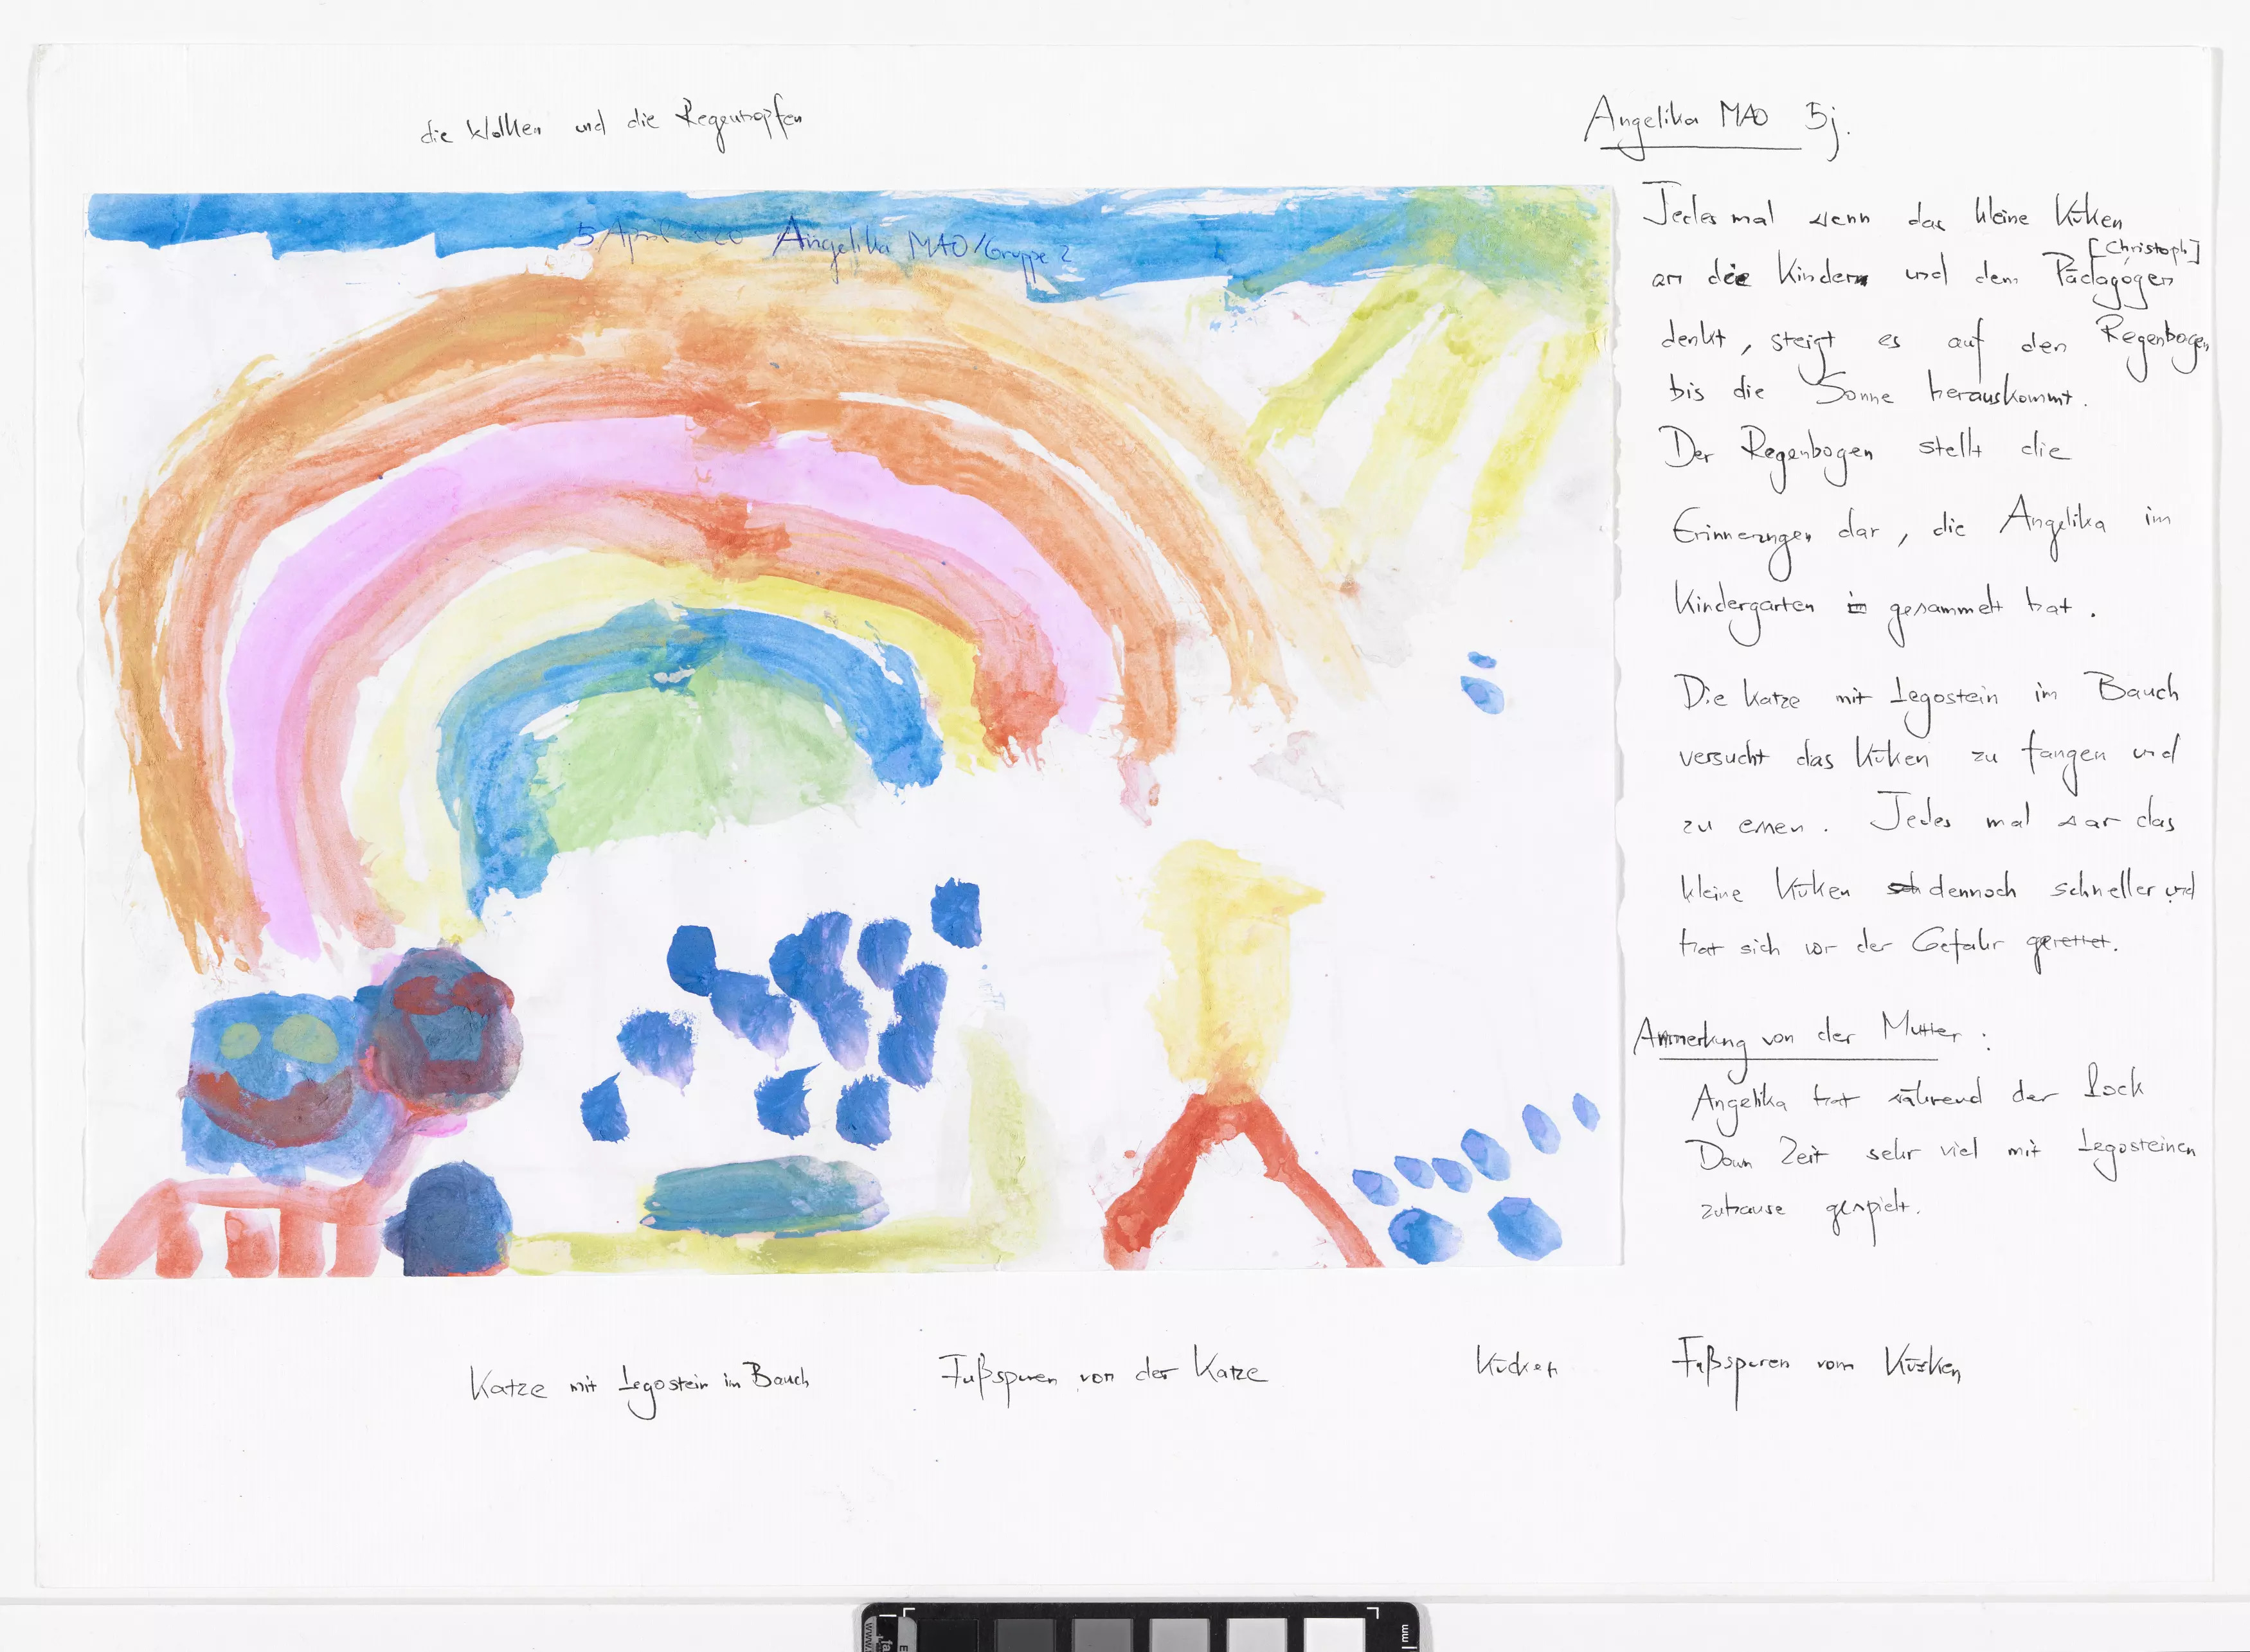 die Wolken und die Regentropfen
Angelika MAO 5j.
5 April 2020 Angelika MAO/Gruppe 2
Jedes mal wenn das kleine Küken
[Christoph]
an die Kinder und dem Pädagogen
denkt, steigt es auf den Regenbogen
bis die Sonne herauskommt.
Der Regenbogen stellt die
Erinnerungen dar, die Angelika im
Kindergarten gesammelt hat.
Die Katze mit Legostein im Bauch
versucht das Küken zu fangen und
zu essen. Jedes mal war das
kleine Küken dennoch schneller und
hat sich vor der Gefahr gerettet.
Anmerkung von der Mutter:
Angelika hat während der Lock
Down Zeit sehr viel mit Legosteinen
zuhause gespielt.
Katze mit Legostein im Bauch
Fußspuren von der Katze
Kücken
Fußspuren vom Kücken
mm